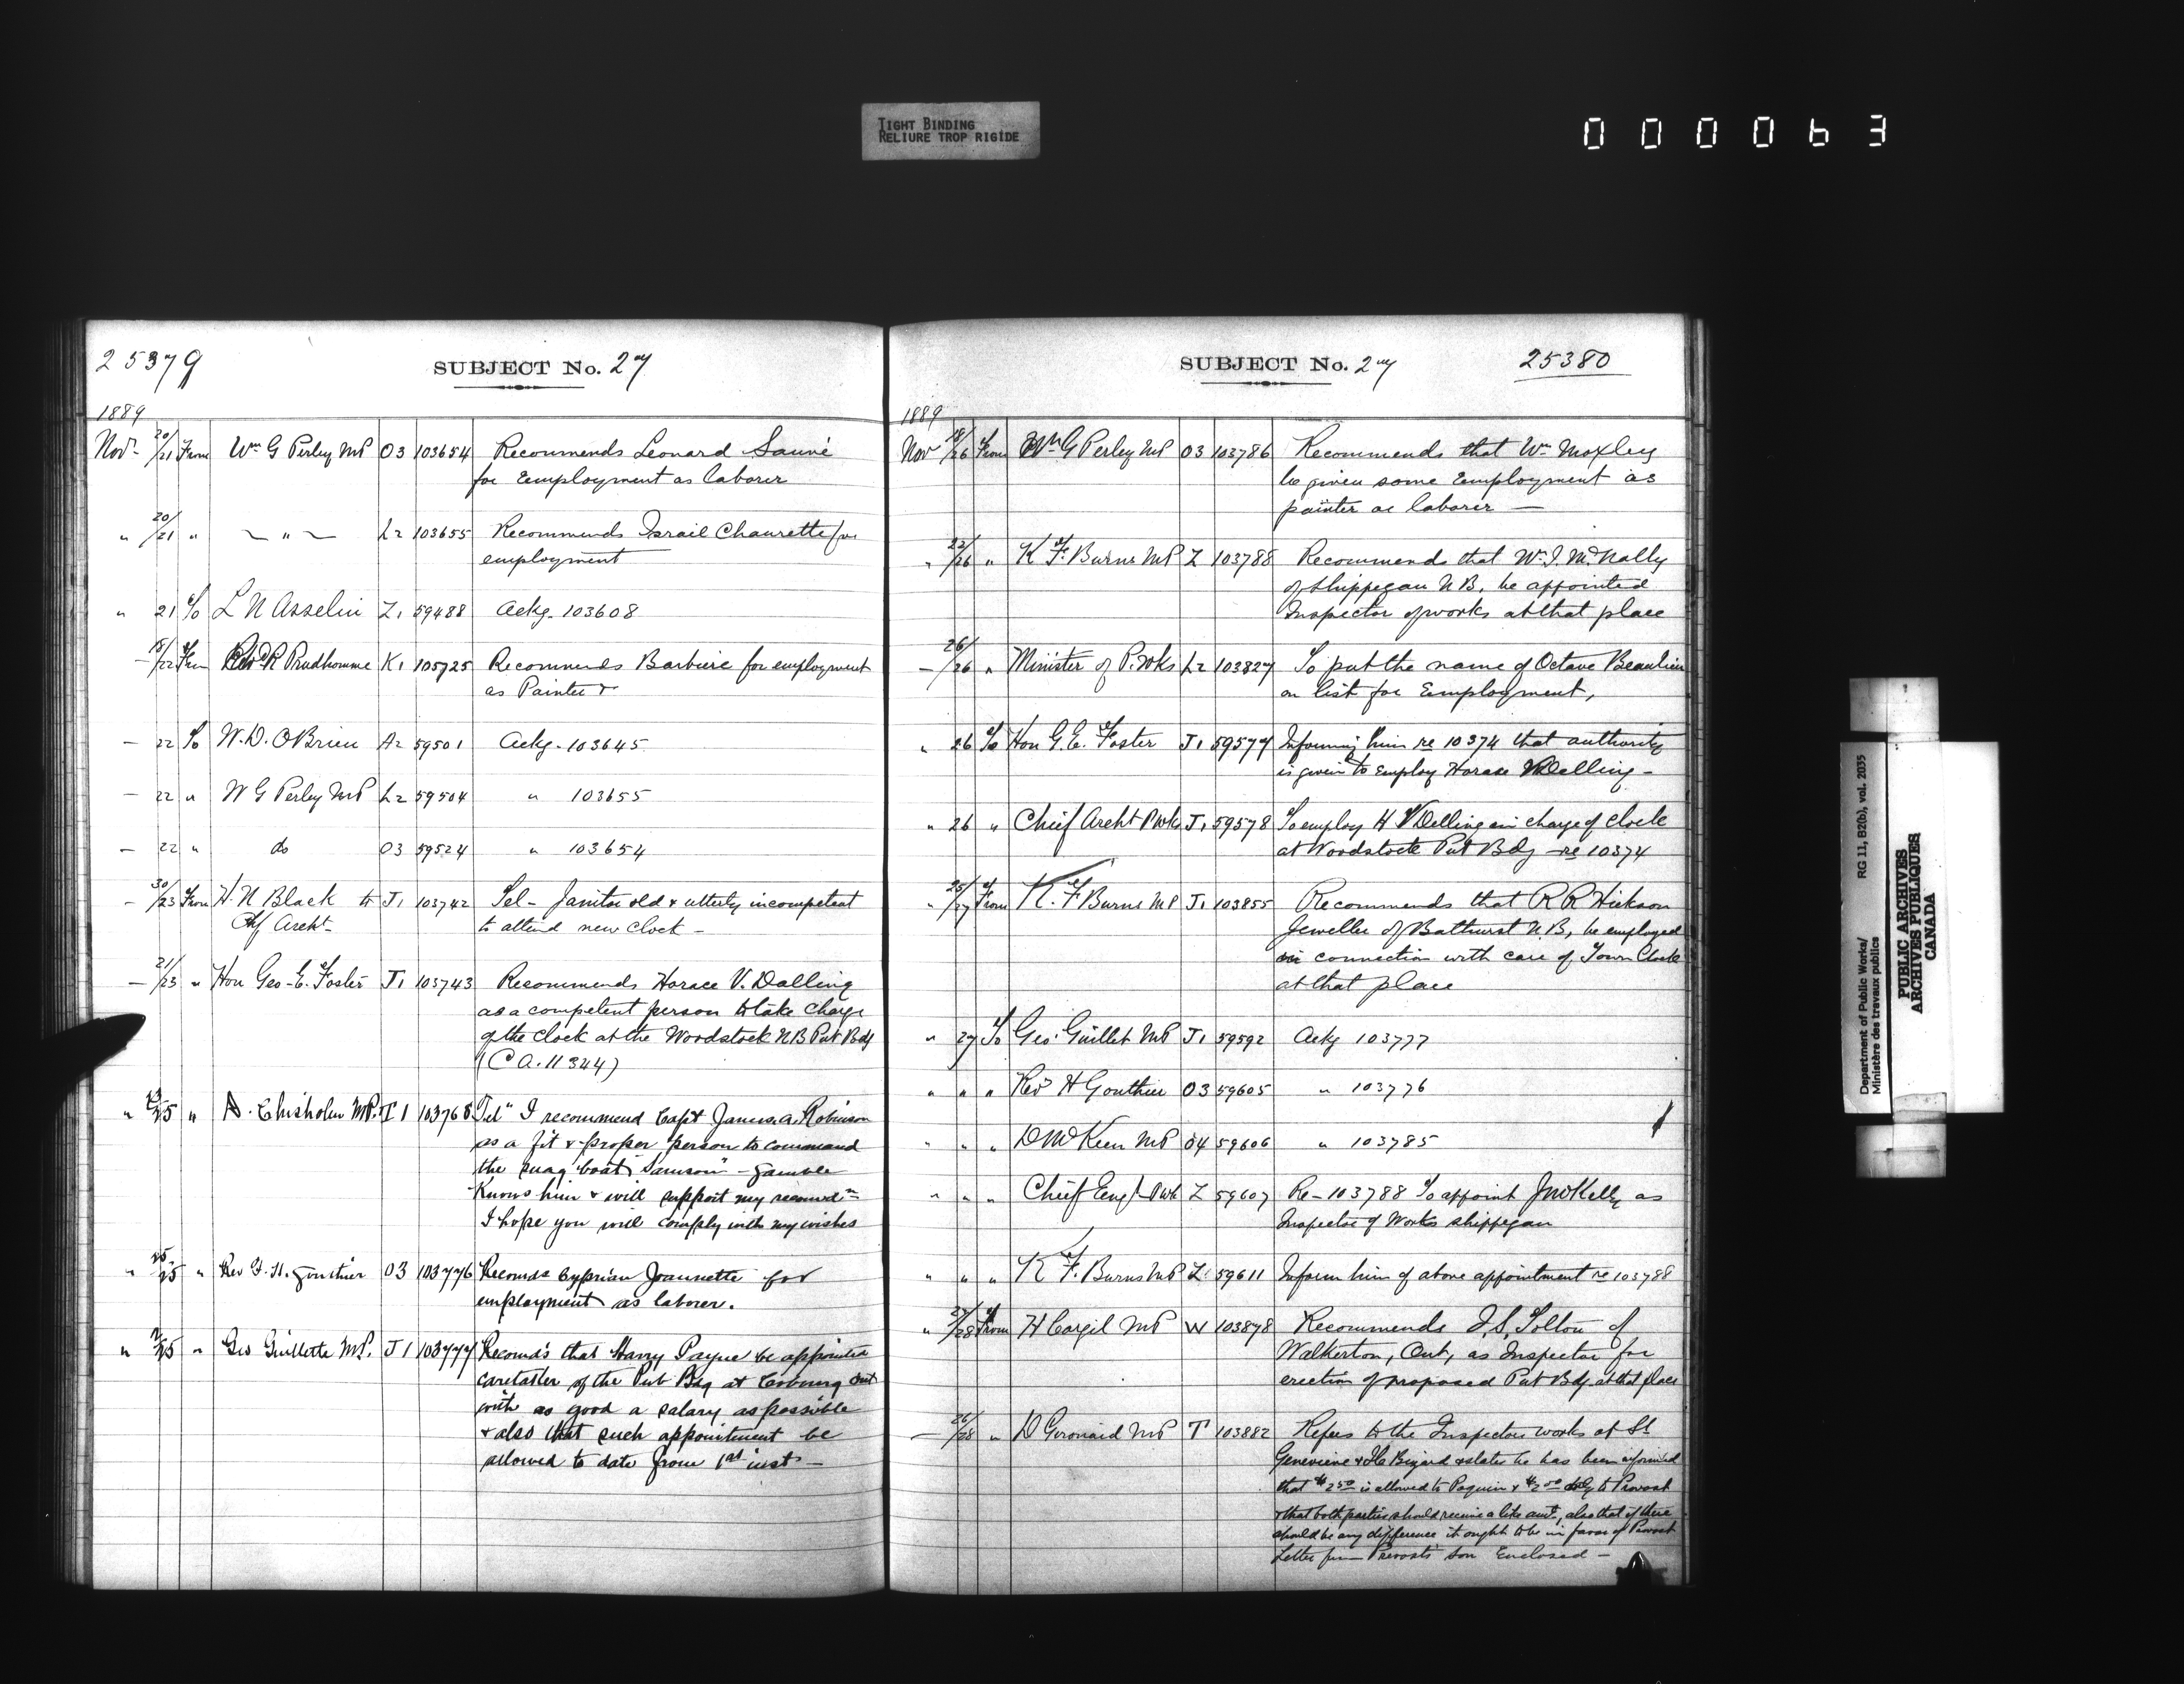 TIGHT BINDING
RELIURE TROP RIGIDE
000063
25379
SUBJECT No. 27
1889
Nov- 20/21 From Wm G Perley MP O3 103654 Recommends Leonard Sauvé
for Employment as laborer
" 20/21 " — " — L2 103655 Recommends Israil Chaurette for
employment
" 21 To L N Asselin Z1 59488 Ackg. 103608
— 18/22 From Revd R Prudhomme K1 105725 Recommends Barbiere for employment
as Painter
— 22 To W. D. OBrien A2 59501 Ackg. 103645
— 22 " W G Perley MP L2 59504 " 103655
— 22 " do O3 59524 " 103654
— 30/23 From H. N Black to J1 103742 Tel- Janitor old & utterly incompetent
Chf Archt- to attend new clock -
— 21/23 " Hon Geo. E. Foster J1 103743 Recommends Horace V. Dalling
as a competent person to take charge
of the clock at the Woodstock N B Put Bdg
(C A. 11344)
" /25 " D. Chisholm MP. T1 103768 Tel" I recommend Capt James. A. Robinson
as a fit & proper person to command
the snag boat "Samson" - Gamble
Knows him & will support my recomdn
I hope you will comply with my wishes
" 25/25 " Rev F. H. Gouthier O3 103776 Recomds Cyprian Joannette for
employment as laborer.
" /25 " Geo Guillette MP. J1 103777 Recomds that Harry Payne be appointed
caretaker of the Pub Bdg at Cobourg Ont
with as good a salary as possible
& also that such appointment be
allowed to date from 1st inst -
SUBJECT No. 27
25380
1889
Nov 18/26 From Wm G Perley MP O3 103786 Recommends that Wm Moxley
be given some Employment as
painter or laborer —
" 22/26 " K. F. Burns MP Z 103788 Recommends that W. J. McNally
of Shippegan N B, be appointed
Inspector of works at that place
— 26/26 " Minister of P. Wks L2 103827 To put the name of Octave Beaulieu
on list for Employment,
" 26 To Hon G. E. Foster J1 59577 Informing him re 10374 that authority
is given to employ Horace V Delling -
" 26 " Chief Archt P Wks J1 59578 To employ H V Delling in charge of clock
at Woodstock Put Bdg - re 10374
" 25/27 From K. F Burns MP J1 103855 Recommends that R R Hickson
Jeweller of Bathurst N.B, be employed
in connection with care of Town Clock
at that place
" 27 To Geo. Guillet MP J1 59592 Ackg 103777
" " " Revd H Gouthier O3 59605 " 103776
" " D McKeen MP O4 59606 " 103785
" " " Chief Engr P Wk Z 59607 Re- 103788 To appoint J McKelly as
Inspector of Works Shippegan
" " " K F. Burns MP Z 59611 Inform him of above appointment re 103788
" 27/28 From H Cargil MP W 103878 Recommends J. S. Tolton of
Walkerton, Ont, as Inspector for
erection of proposed Put Bdg at that place
— 26/28 " D Gironard MP T 103882 Refers to the Inspectors works at St
Genevieve & Ile Bizard & states he has been informed
that $2.50 is allowed to Paquin & $2.00 only to Provost
& that both parties should receive a like amt, also that if there
should be any difference it ought to be in favor of Provost
Letter from Prevosts son Enclosed -
Department of Public Works/
Ministère des travaux publics
RG 11, B2(b), vol. 2035
PUBLIC ARCHIVES
ARCHIVES PUBLIQUES
CANADA